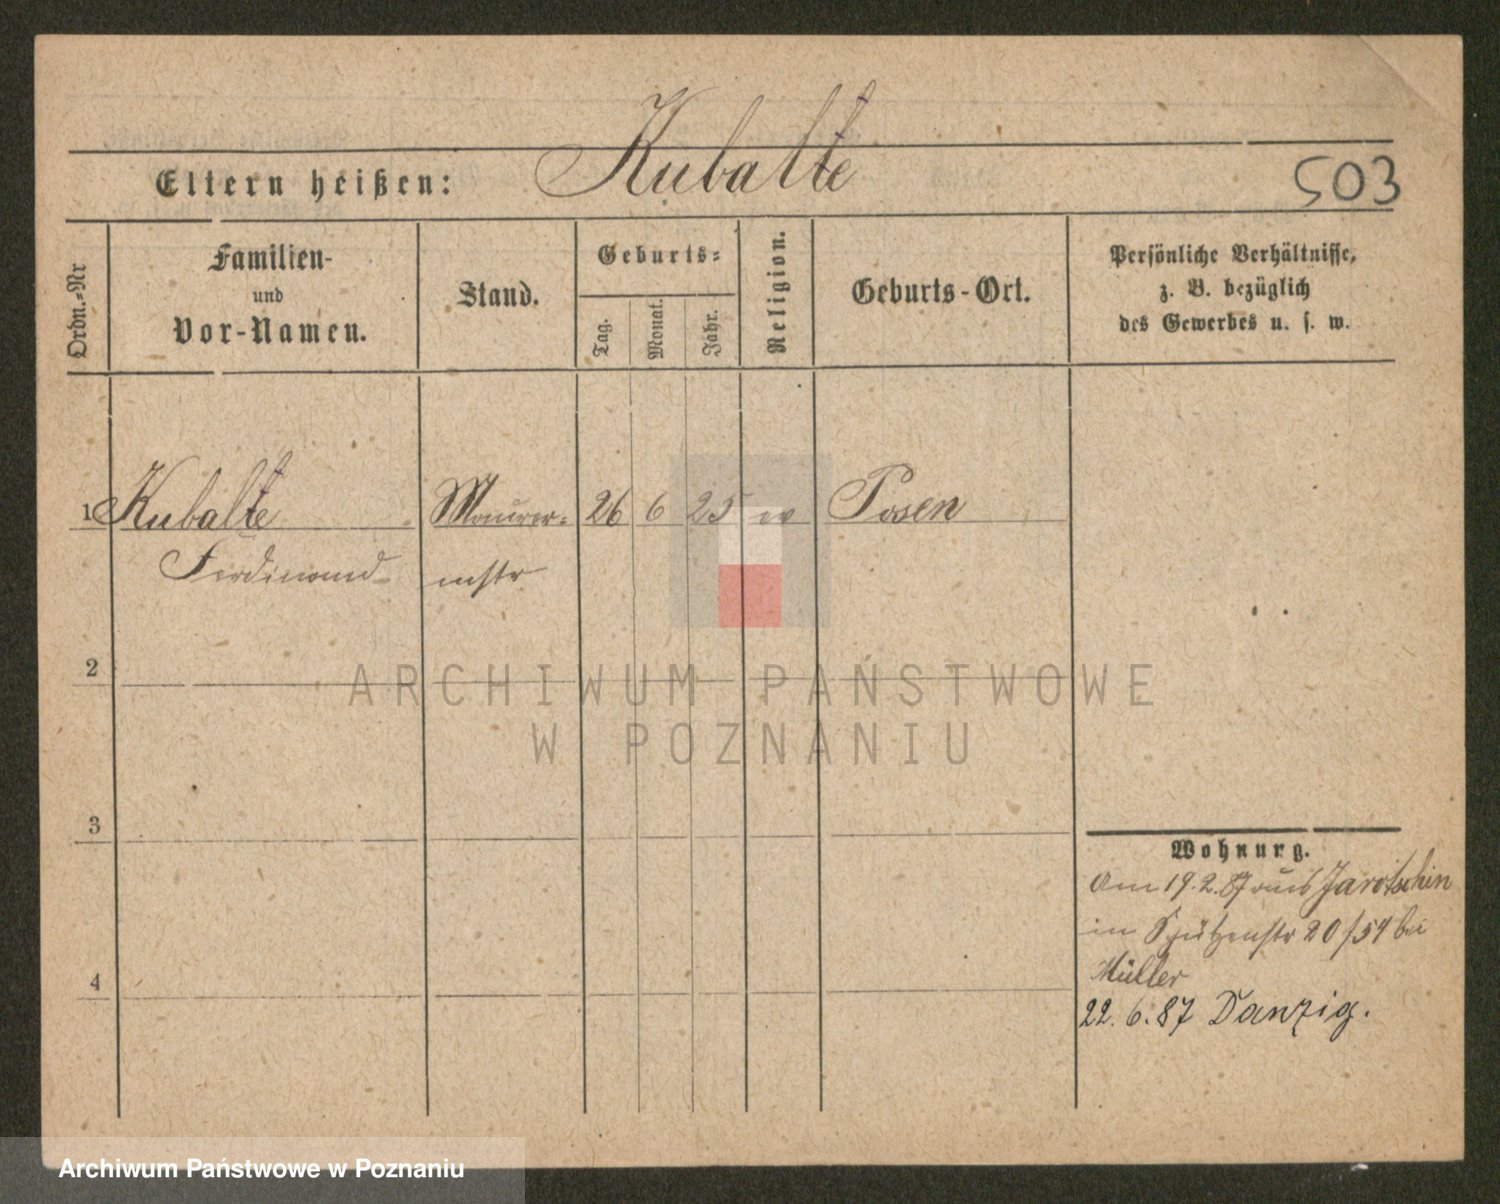 Kubatte
Eltern heißen:
503
Ordn.=Nr
Familien-
und
Vor-Namen.
Stand.
Geburts=
Tag.
Monat.
Jahr.
Religion.
Geburts-Ort.
Persönliche Verhältnisse,
z. B. bezüglich
des Gewerbes u. s. w.
1 Kubatte Maurer= 26 6 25 ev Posen
Ferdinand mstr
2
3
4
Wohnung.
Am 19.2.87 aus Jarotschin
in Schützenstr 20/54 bei
Müller
22.6.87 Danzig.
ARCHIWUM PAŃSTWOWE
W POZNANIU
Archiwum Państwowe w Poznaniu